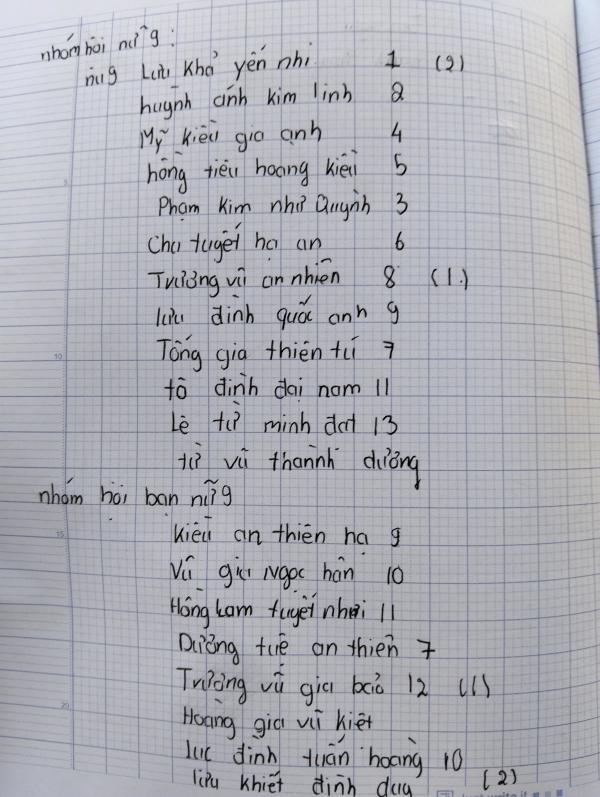 nhóm hội nữ 9:
nu9 Lưu khả yến nhi 1 (2)
huỳnh ánh kim linh 2
Mỹ kiều gia anh 4
hồng tiêu hoang kiều 5
Phạm kim như Quỳnh 3
Chu tuyết hạ an 6
Trương vũ an nhiên 8 (1.)
lưu đình quốc anh 9
Tống gia thiên tú 7
tô đình đại nam 11
Lê tử minh đạt 13
từ vũ thành dương
nhóm hội bạn nữ 9
kiều an thiên hạ 9
Vũ gia Ngọc hân 10
Hồng Lam tuyết nhi 11
Dương tuê an thiên 7
Trương vũ gia bảo 12 (1)
Hoàng gia vũ kiệt
lục đình tuấn hoàng 10
lưu khiết định duy (2)